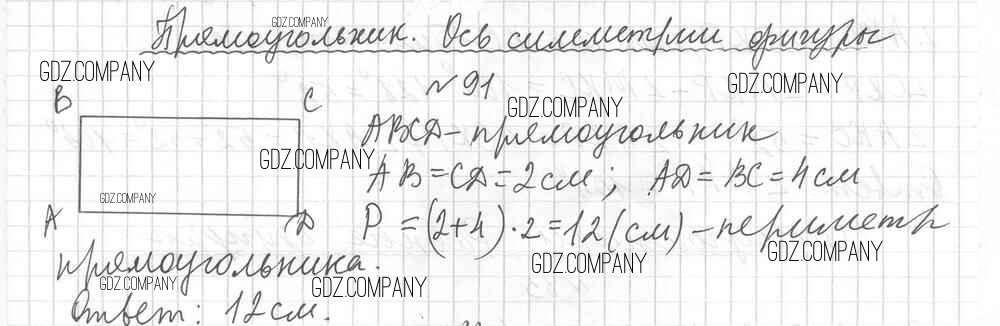 Прямоугольник. Ось симметрии фигуры
GDZ.COMPANY
GDZ.COMPANY
GDZ.COMPANY
№ 91
GDZ.COMPANY
B C
ABCD - прямоугольник
GDZ.COMPANY
AB = CD = 2 см; AD = BC = 4 см
GDZ.COMPANY
A D
P = (2+4)·2 = 12 (см) - периметр
GDZ.COMPANY
GDZ.COMPANY
прямоугольника.
GDZ.COMPANY
GDZ.COMPANY
Ответ: 12 см.